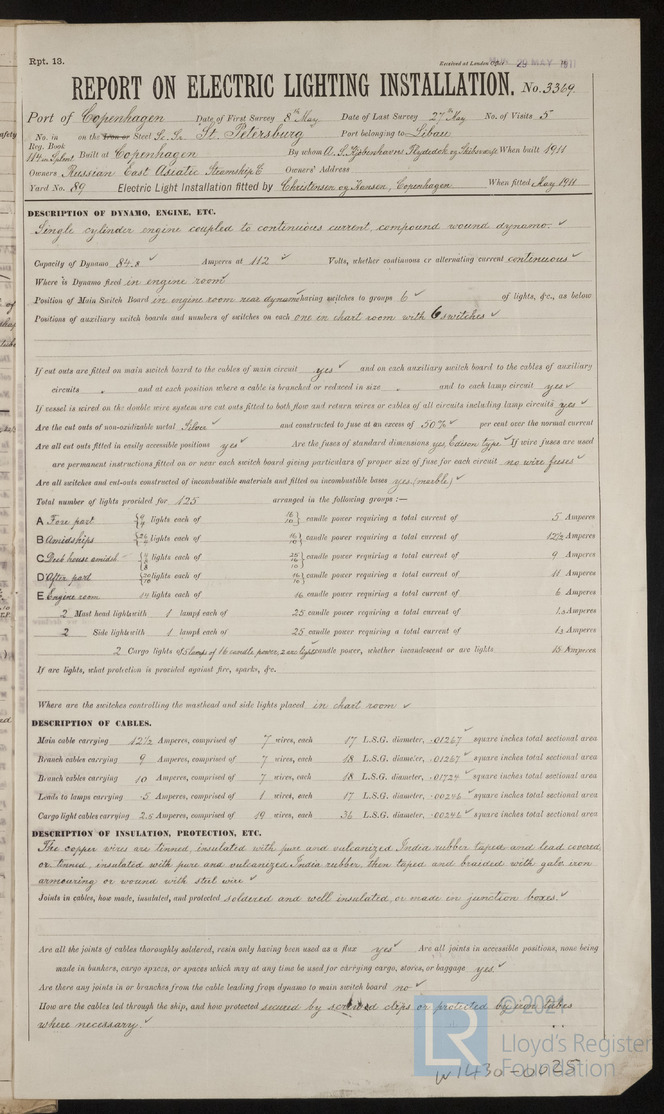 Rpt. 13.
Received at London Office 29 MAY 1911
REPORT ON ELECTRIC LIGHTING INSTALLATION. No. 3369
Port of Copenhagen Date of First Survey 8th May Date of Last Survey 27th May No. of Visits 5
No. in on the Iron or Steel Sc. Sr. St. Petersburg Port belonging to Libau
Reg. Book
114 in Suplmt Built at Copenhagen By whom A. S. Kjöbenhavns Flydedok og Skibsværft When built 1911
Owners Russian East Asiatic Steamship Co Owners' Address
Yard No. 89 Electric Light Installation fitted by Christensen og Hansen, Copenhagen When fitted May 1911
DESCRIPTION OF DYNAMO, ENGINE, ETC.
Single cylinder engine coupled to continuous current, compound wound dynamo. ✓
Capacity of Dynamo 84.8 ✓ Amperes at 112 ✓ Volts, whether continuous or alternating current continuous ✓
Where is Dynamo fixed in engine room ✓
Position of Main Switch Board in engine room near dynamo having switches to groups 6 ✓ of lights, &c., as below
Positions of auxiliary switch boards and numbers of switches on each one in chart room with 6 switches ✓
If cut outs are fitted on main switch board to the cables of main circuit yes ✓ and on each auxiliary switch board to the cables of auxiliary
circuits „ and at each position where a cable is branched or reduced in size „ and to each lamp circuit yes ✓
If vessel is wired on the double wire system are cut outs fitted to both flow and return wires or cables of all circuits including lamp circuits yes ✓
Are the cut outs of non-oxidizable metal Silver ✓ and constructed to fuse at an excess of 50% ✓ per cent over the normal current
Are all cut outs fitted in easily accessible positions yes ✓ Are the fuses of standard dimensions yes, Edison type ✓ If wire fuses are used
are permanent instructions fitted on or near each switch board giving particulars of proper size of fuse for each circuit no wire fuses ✓
Are all switches and cut-outs constructed of incombustible materials and fitted on incombustible bases yes (marble) ✓
Total number of lights provided for 125 arranged in the following groups :—
A Fore part lights each of 16 10 candle power requiring a total current of 5 Amperes
B Amidships lights each of 16 10 candle power requiring a total current of 12½ Amperes
C Deck house amidsh. lights each of 25 16 10 candle power requiring a total current of 9 Amperes
D After part 20 18 lights each of 16 10 candle power requiring a total current of 11 Amperes
E Engine room 14 lights each of 16 candle power requiring a total current of 6 Amperes
2 Mast head light with 1 lamp each of 25 candle power requiring a total current of 1.3 Amperes
2 Side light with 1 lamp each of 25 candle power requiring a total current of 1.3 Amperes
2 Cargo lights of 5 lamps of 16 candle power, 2 arc lights candle power, whether incandescent or arc lights 15 Amperes
If arc lights, what protection is provided against fire, sparks, &c.
Where are the switches controlling the masthead and side lights placed in chart room ✓
DESCRIPTION OF CABLES.
Main cable carrying 12½ Amperes, comprised of 7 wires, each 17 L.S.G. diameter, .01267 ✓ square inches total sectional area
Branch cables carrying 9 Amperes, comprised of 7 wires, each 18 L.S.G. diameter, .01267 ✓ square inches total sectional area
Branch cables carrying 10 Amperes, comprised of 7 wires, each 18 L.S.G. diameter, .01724 ✓ square inches total sectional area
Leads to lamps carrying .5 Amperes, comprised of 1 wires, each 17 L.S.G. diameter, .00246 ✓ square inches total sectional area
Cargo light cables carrying 2.5 Amperes, comprised of 19 wires, each 36 L.S.G. diameter, .00246 ✓ square inches total sectional area
DESCRIPTION OF INSULATION, PROTECTION, ETC.
The copper wires are tinned, insulated with pure and vulcanized India rubber taped and lead covered,
or tinned, insulated with pure and vulcanized India rubber then taped and braided with galv. iron
armouring or wound with steel wire ✓
Joints in cables, how made, insulated, and protected soldered and well insulated, or made in junction boxes. ✓
Are all the joints of cables thoroughly soldered, resin only having been used as a flux yes ✓ Are all joints in accessible positions, none being
made in bunkers, cargo spaces, or spaces which may at any time be used for carrying cargo, stores, or baggage yes. ✓
Are there any joints in or branches from the cable leading from dynamo to main switch board no ✓
How are the cables led through the ship, and how protected secured by screwed clips or protected by iron tubes
where necessary. ✓
LR © 2021
Lloyd's Register
Foundation
W1430-0025